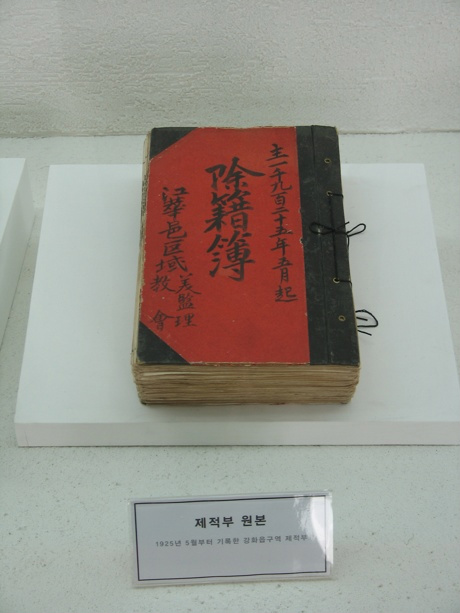 主一千九百二十五年五月起
除籍簿
江華邑區域
美監理
教會
제적부 원본
1925년 5월부터 기록한 강화읍구역 제적부